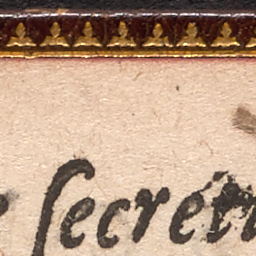 e ſecréti